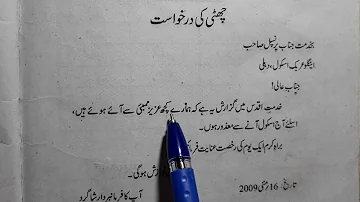 چھٹی کی درخواست
بخدمت جناب پرنسپل صاحب
اینگلو عربک اسکول، دہلی
جناب عالی!
خدمتِ اقدس میں گزارش یہ ہے کہ ہمارے کچھ عزیز ممبئی سے آئے ہوئے ہیں،
اسلئے آج اسکول آنے سے معذور ہوں۔
براہِ کرم ایک یوم کی رخصت عنایت فرما
ہوگی۔
تاریخ: 16 مئی 2009
آپ کا فرمانبردار شاگرد